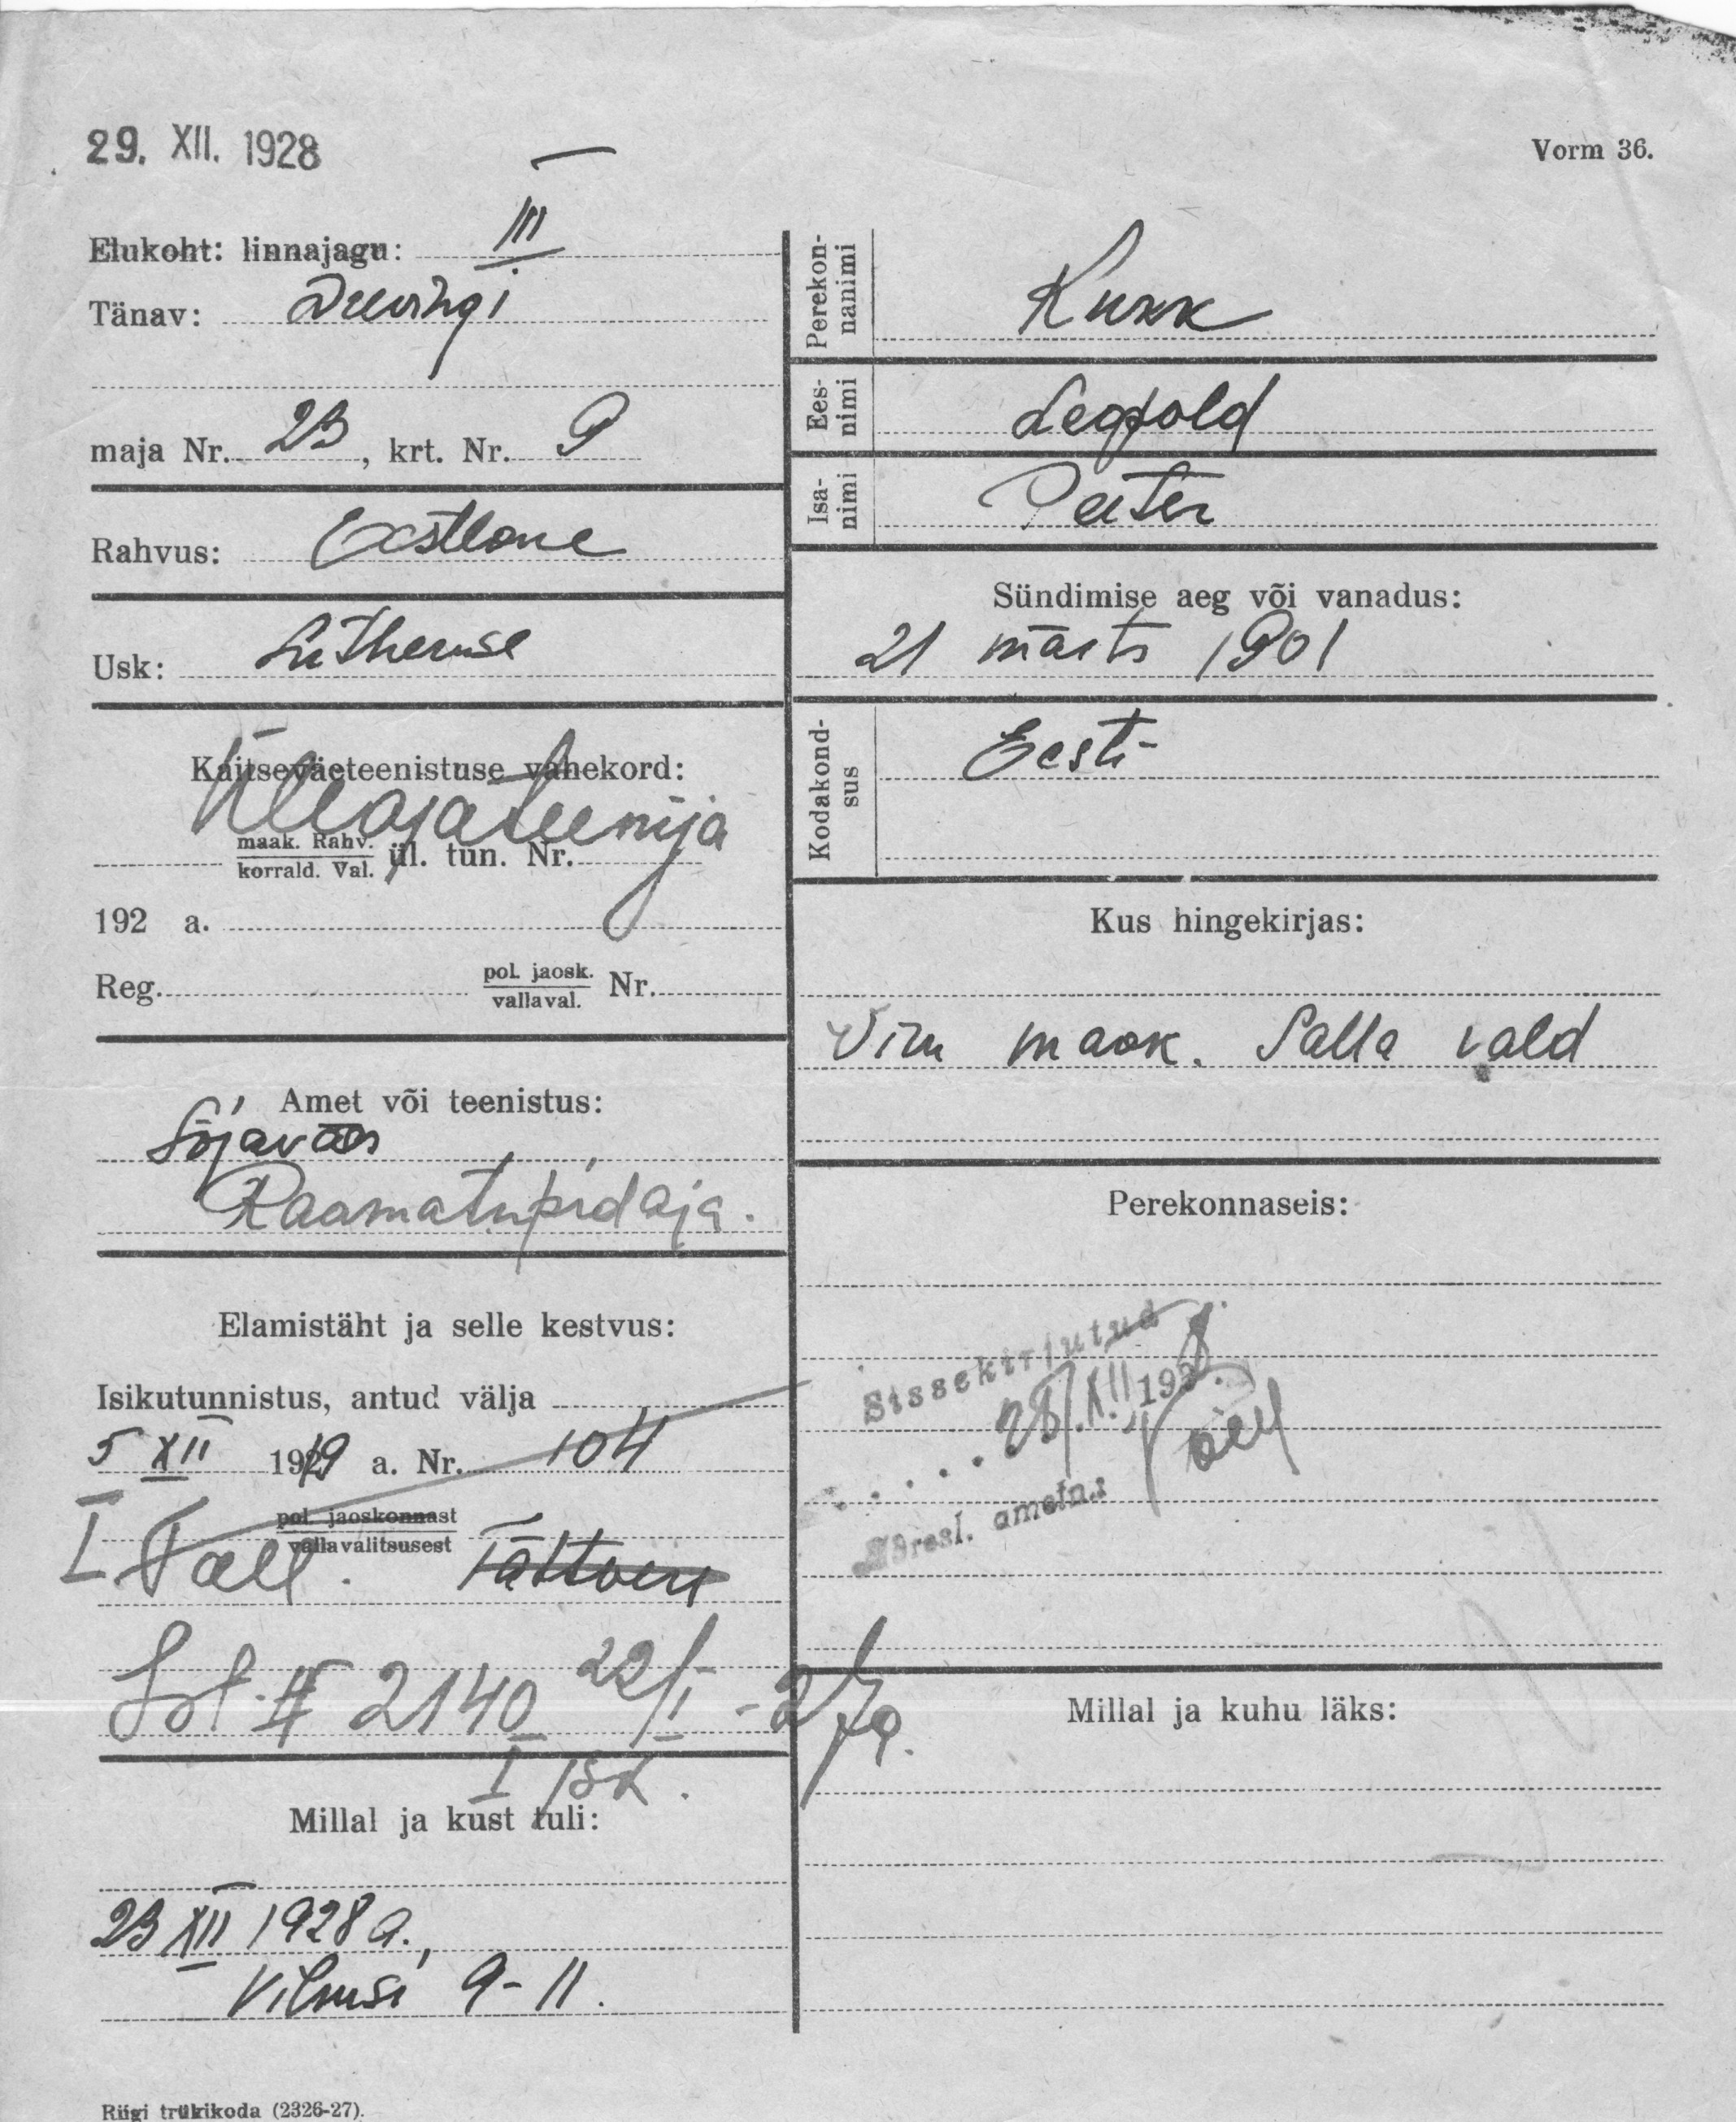 29. XII. 1928
Vorm 36.
Elukoht: linnajagu: III
Tänav:
maja Nr. 23, krt. Nr. 9
Rahvus: Eestlane
Usk: Lutheruse
Kaitseväeteenistuse vahekord:
Üleajateenija
maak. Rahv.
korrald. Val. ül. tun. Nr.
192 a.
Reg. pol. jaosk.
vallaval. Nr.
Amet või teenistus:
Sõjaväes
Raamatupidaja.
Elamistäht ja selle kestvus:
Isikutunnistus, antud välja
5 XII 1919 a. Nr. 104
pol. jaoskonnast
vallavalitsusest
I Tall. Tähtvere
II 2140 22/I - 27a.
I jsk.
Millal ja kust tuli:
23 XII 1928 a.,
Vilmsi 9-11.
Riigi trükikoda (2326-27).
Perekonnanimi
Kukk
Eesnimi
Leopold
Isanimi
Peeter
Sündimise aeg või vanadus:
21 märts 1901
Kodakondsus
Eesti
Kus hingekirjas:
Viru maak. Salla vald
Perekonnaseis:
Sissekirjutud
28. XII 1928.
Adresl. ametn.:
Millal ja kuhu läks: